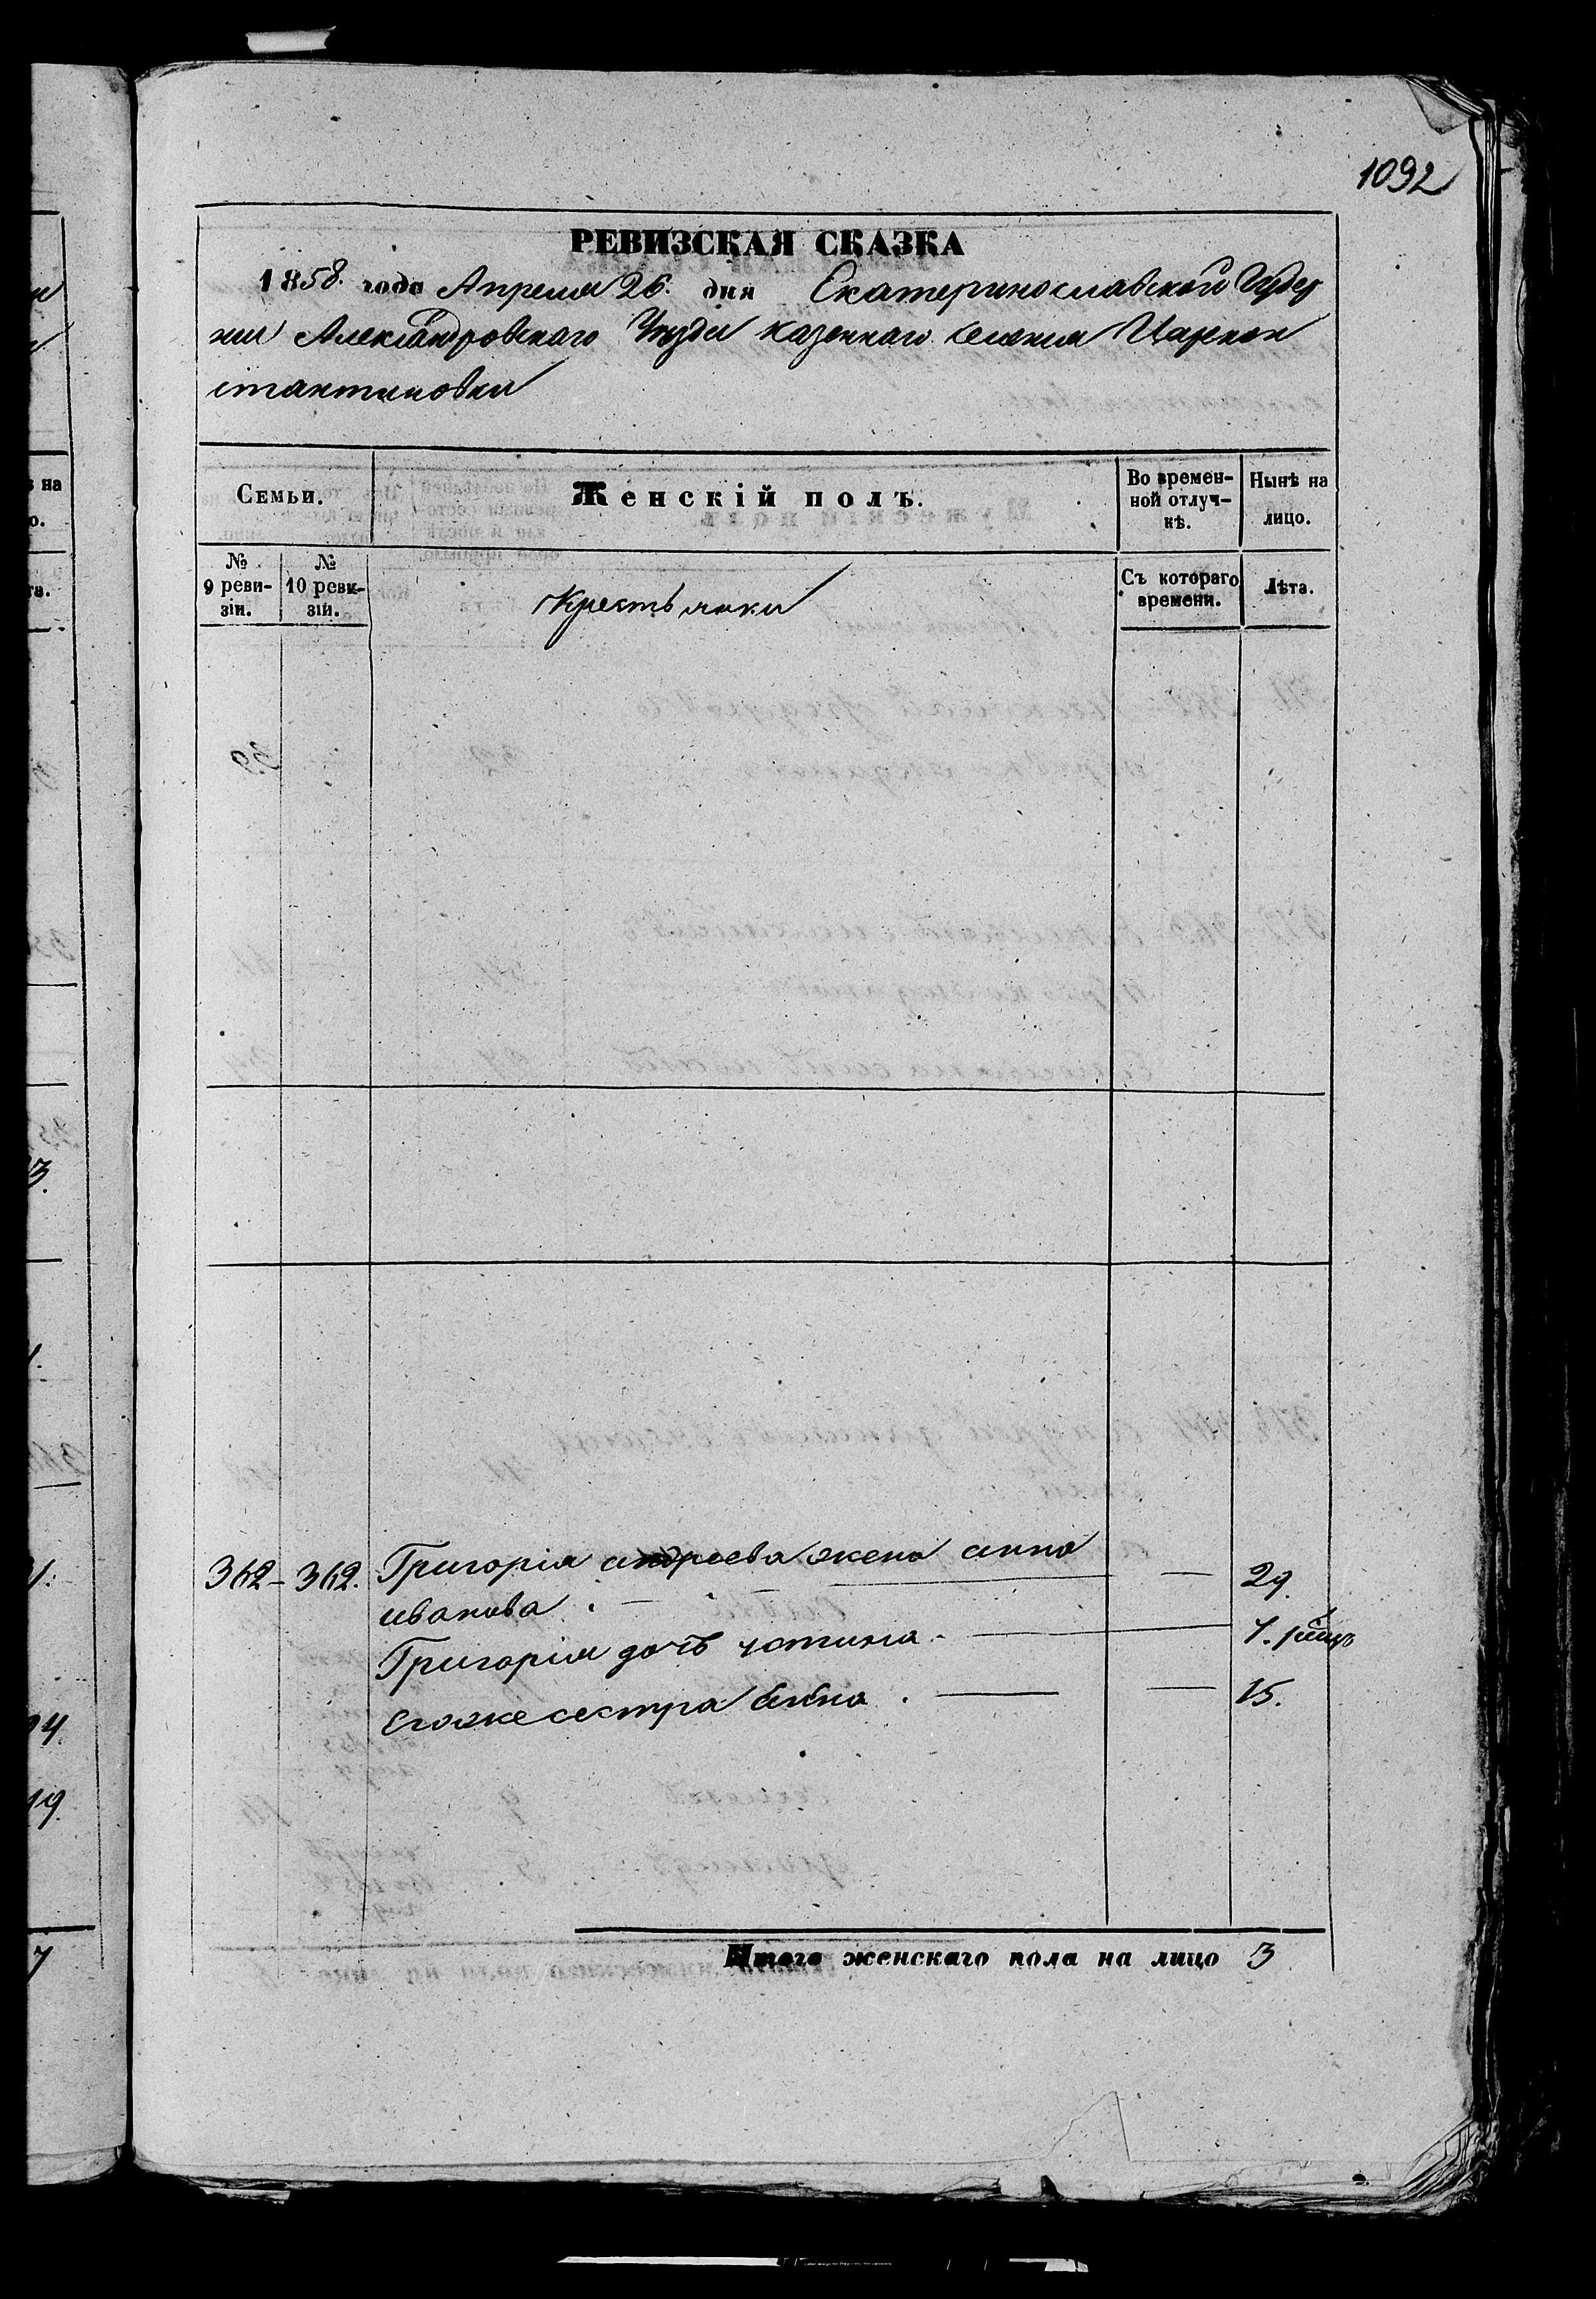 1092
РЕВИЗСКАЯ СКАЗКА
1858. года Апреля 26. дня Екатеринославской Губер
нии Александровскаго Уезда казеннаго селения Царекон
стантиновки
Семьи.
Женскій полъ.
Во времен-
ной отлуч-
кѣ.
Нынѣ на
лицо.
№
9 реви-
зіи.
№
10 реви-
зіи.
Крестьянки
Съ котораго
времени.
Лѣта.
362 - 362. Григорія андреева жена анна
иванова. — — 29.
Григорія дочь устина. —
Егоже сестра Анна. — — 15.
Итого женскаго пола на лицо 3